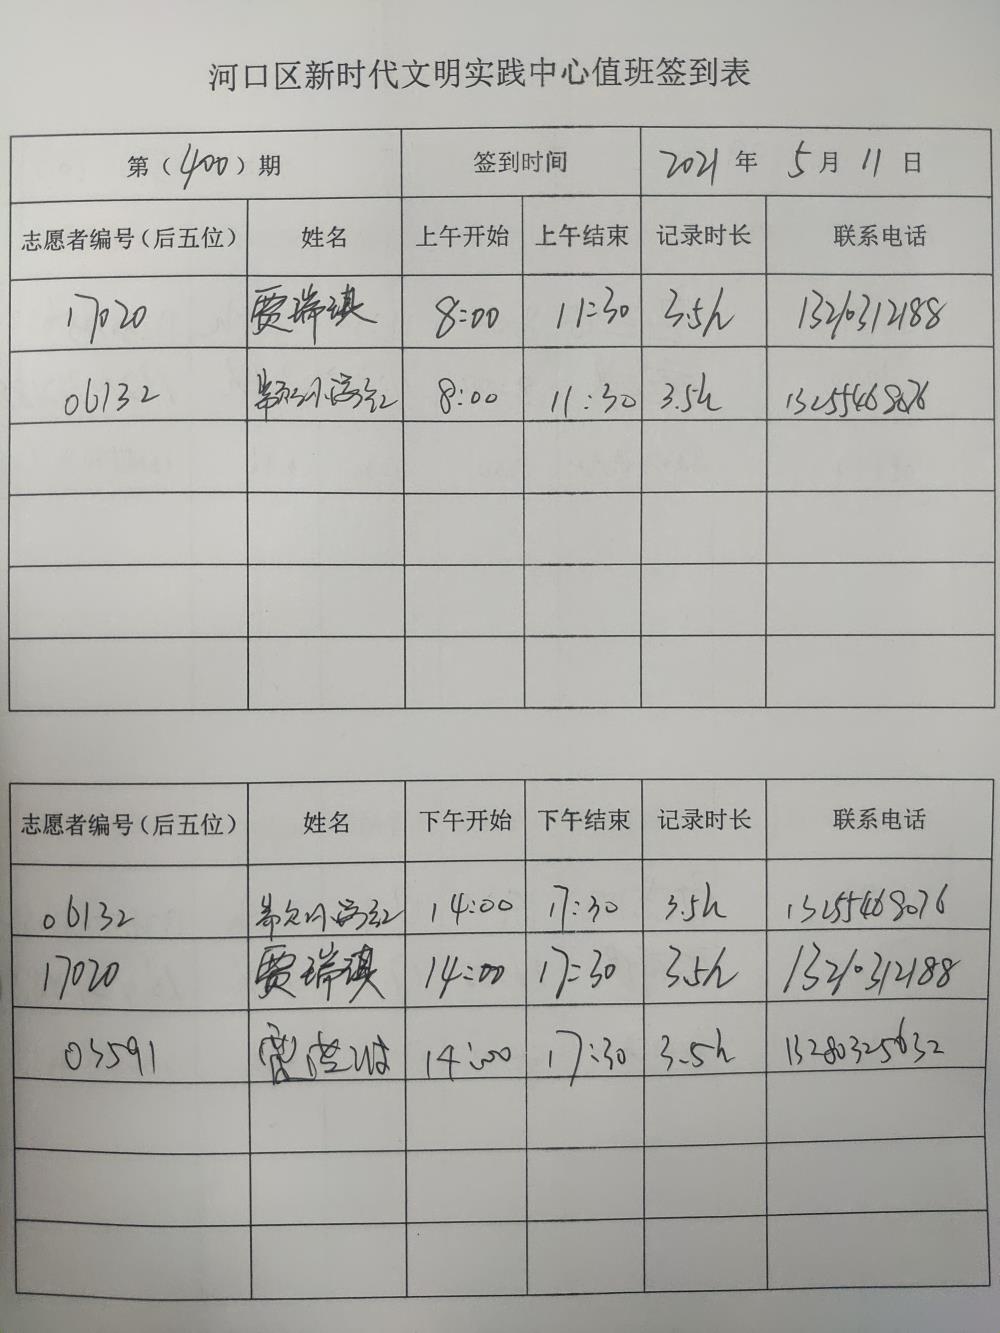 河口区新时代文明实践中心值班签到表
第（400）期 签到时间 2021 年 5 月 11 日
志愿者编号（后五位） 姓名 上午开始 上午结束 记录时长 联系电话
17020 贾瑞琪 8:00 11:30 3.5h
06132 8:00 11:30 3.5h 13255468076
志愿者编号（后五位） 姓名 下午开始 下午结束 记录时长 联系电话
06132 14:00 17:30 3.5h 13255468076
17020 贾瑞琪 14:00 17:30 3.5h
03591 14:00 17:30 3.5h 13280325632